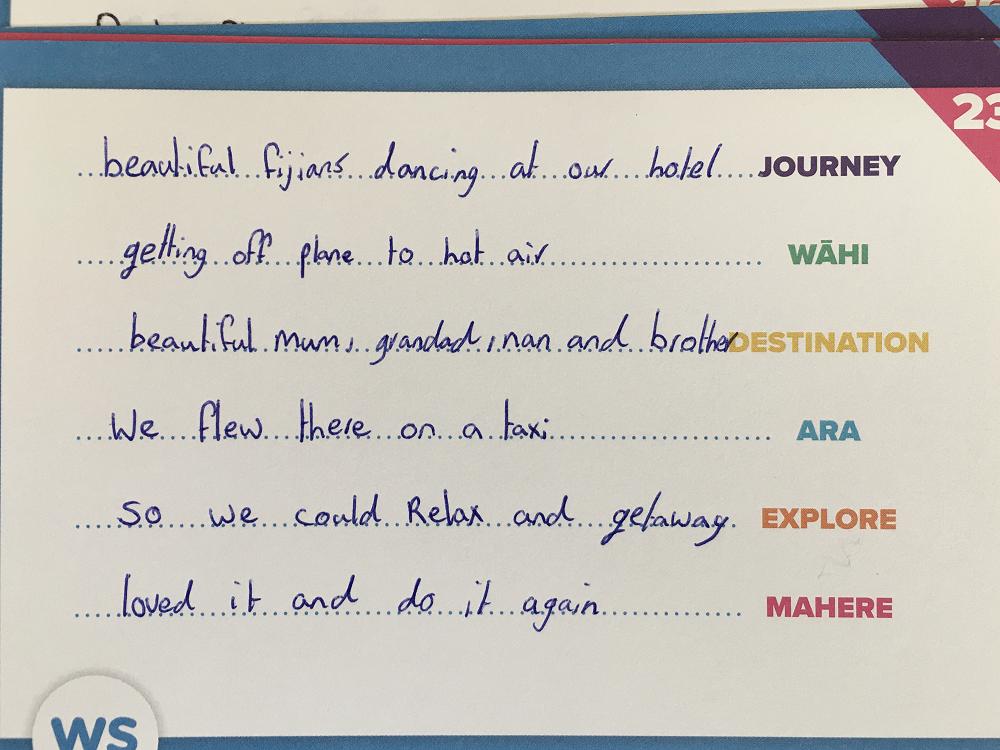 23
beautiful fijians dancing at our hotel JOURNEY
getting off plane to hot air WĀHI
beautiful mum, grandad, nan and brother DESTINATION
We flew there on a taxi ARA
so we could Relax and getaway. EXPLORE
loved it and do it again MAHERE
WS